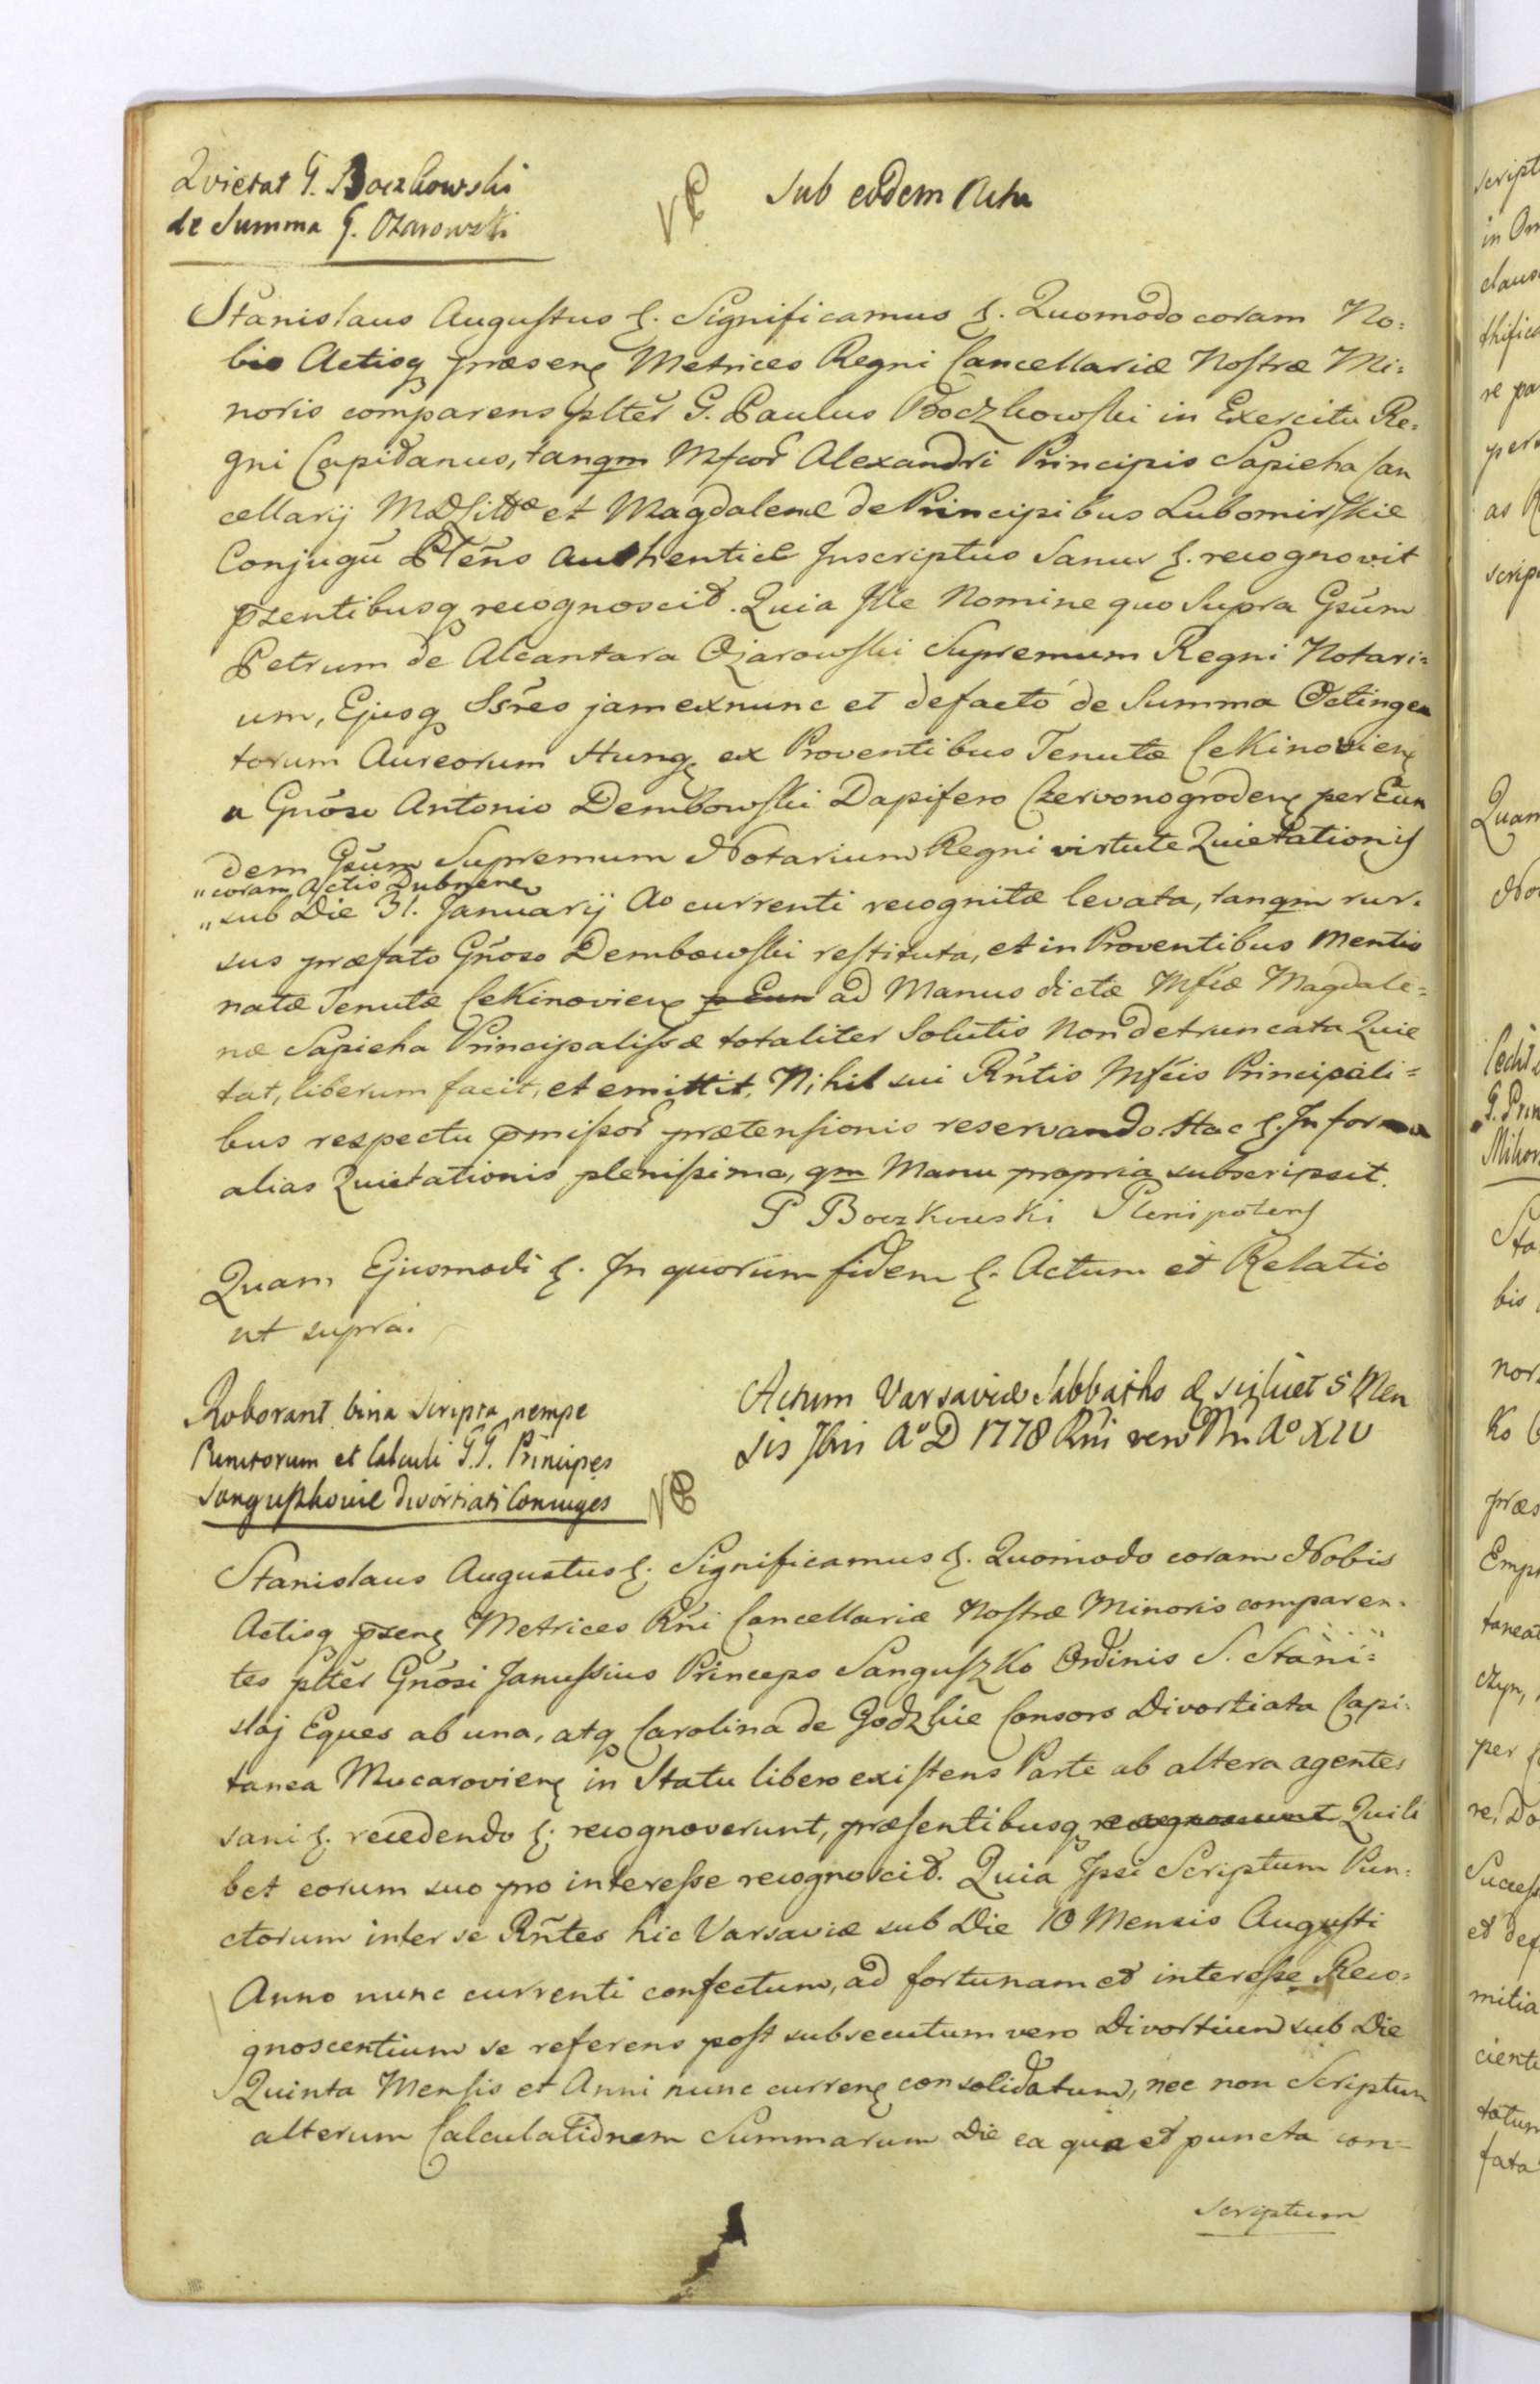 Quietat G. Boczkowski
de Summa G. Ozarowski
Sub eodem Actu
Stanislaus Augustus &. Significamus &. Quomodo coram No:
bis Actisq præsen Metrices Regni Cancellariæ Nostræ Mi:
noris comparens plter G. Paulus Boczkowski in Exercitu Re:
gni Capitaneus, tanqm Mfcor Alexandri Principis Sapieha Can
cellarij MDLittæ et Magdalenæ de Principibus Lubomirskie
Conjugū Plēns Authentice Inscriptus Sanus &. recognovit
pzentibusq recognoscit. Quia Ille Nomine quo Supra Gsūm
Petrum de Alcantara Ozarowski Supremum Regni Notari=
um, Ejusq Ssr̄es jam exnunc et defacto de Summa Octingen
torum Aureorum Hung ex Proventibus Tenutæ Cekinovien
a Gnōso Antonio Dembowski Dapifero Czervonogroden per Eun
dem Gsūm Supremum Notarium Regni virtute Quietationis
"coram Actis Dubnen
"sub Die 31. Januarij Ao currenti recognitæ levata, tanqm rur.
sus præfato Gñoso Dembowski restituta, et in Proventibus Mentio
natæ Tenutæ Cekinovien p Eun ad Manus dictæ Mfcæ Magdale=
næ Sapieha Principalissæ totaliter Solutis Non detruncata Quie
tat, liberum facit, et emittit, Nihil sui Rñtis Mfcis Principali=
bus respectu pmissor prætensionis reservando. Hac &. In forma
alias Quietationis plenissima, qm Manu propria subscripsit.
P Boczkowski Plenipotens
Quam Ejusmodi &. In quorum fidem &. Actum et Relatio
ut supra.
Roborant bina Scripta nempe
Punctorum et Calculi G.G. Principes
Sanguszkowie divortiati Coniuges
Actum Varsaviæ Sabbatho & scilicet 5 Men
sis Jbris Ao D 1778 Rñi vero Nri Ao XIV
Stanislaus Augustus &. Significamus &. Quomodo coram Nobis
Actisq pzen Metrices Rñi Cancellariæ Nostræ Minoris comparen.
tes plter Gnōsi Janussius Princeps Sanguszko Ordinis S. Stani=
slaj Eques ab una, atq Carolina de Godzkie Consors Divortiata Capi:
tanea Mucarovien in Statu libero existens Parte ab altera agentes
sani &. recedendo &. recognoverunt, præsentibusq recognoscunt Quili
bet eorum suo pro interesse recognoscit. Quia Ipsi Scriptum Pun:
ctorum inter se Rñtes hic Varsaviæ sub Die 10 Mensis Augusti
Anno nunc currenti confectum, ad fortunam et interesse Reco=
gnoscentium se referens post subsecutum vero Divortium sub Die
Quinta Mensis et Anni nunc curren consolidatum, nec non Scriptum
alterum Calculationem Summarum Die ea qua et puncta con=
scriptum